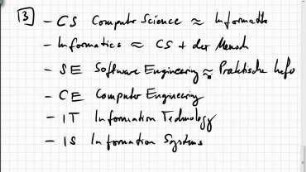 3 - CS Computer Science ≈ Informatik
- Informatics ≈ CS + der Mensch
- SE Software Engineering ≈ Praktische Info
- CE Computer Engineering
- IT Information Technology
- IS Information Systems